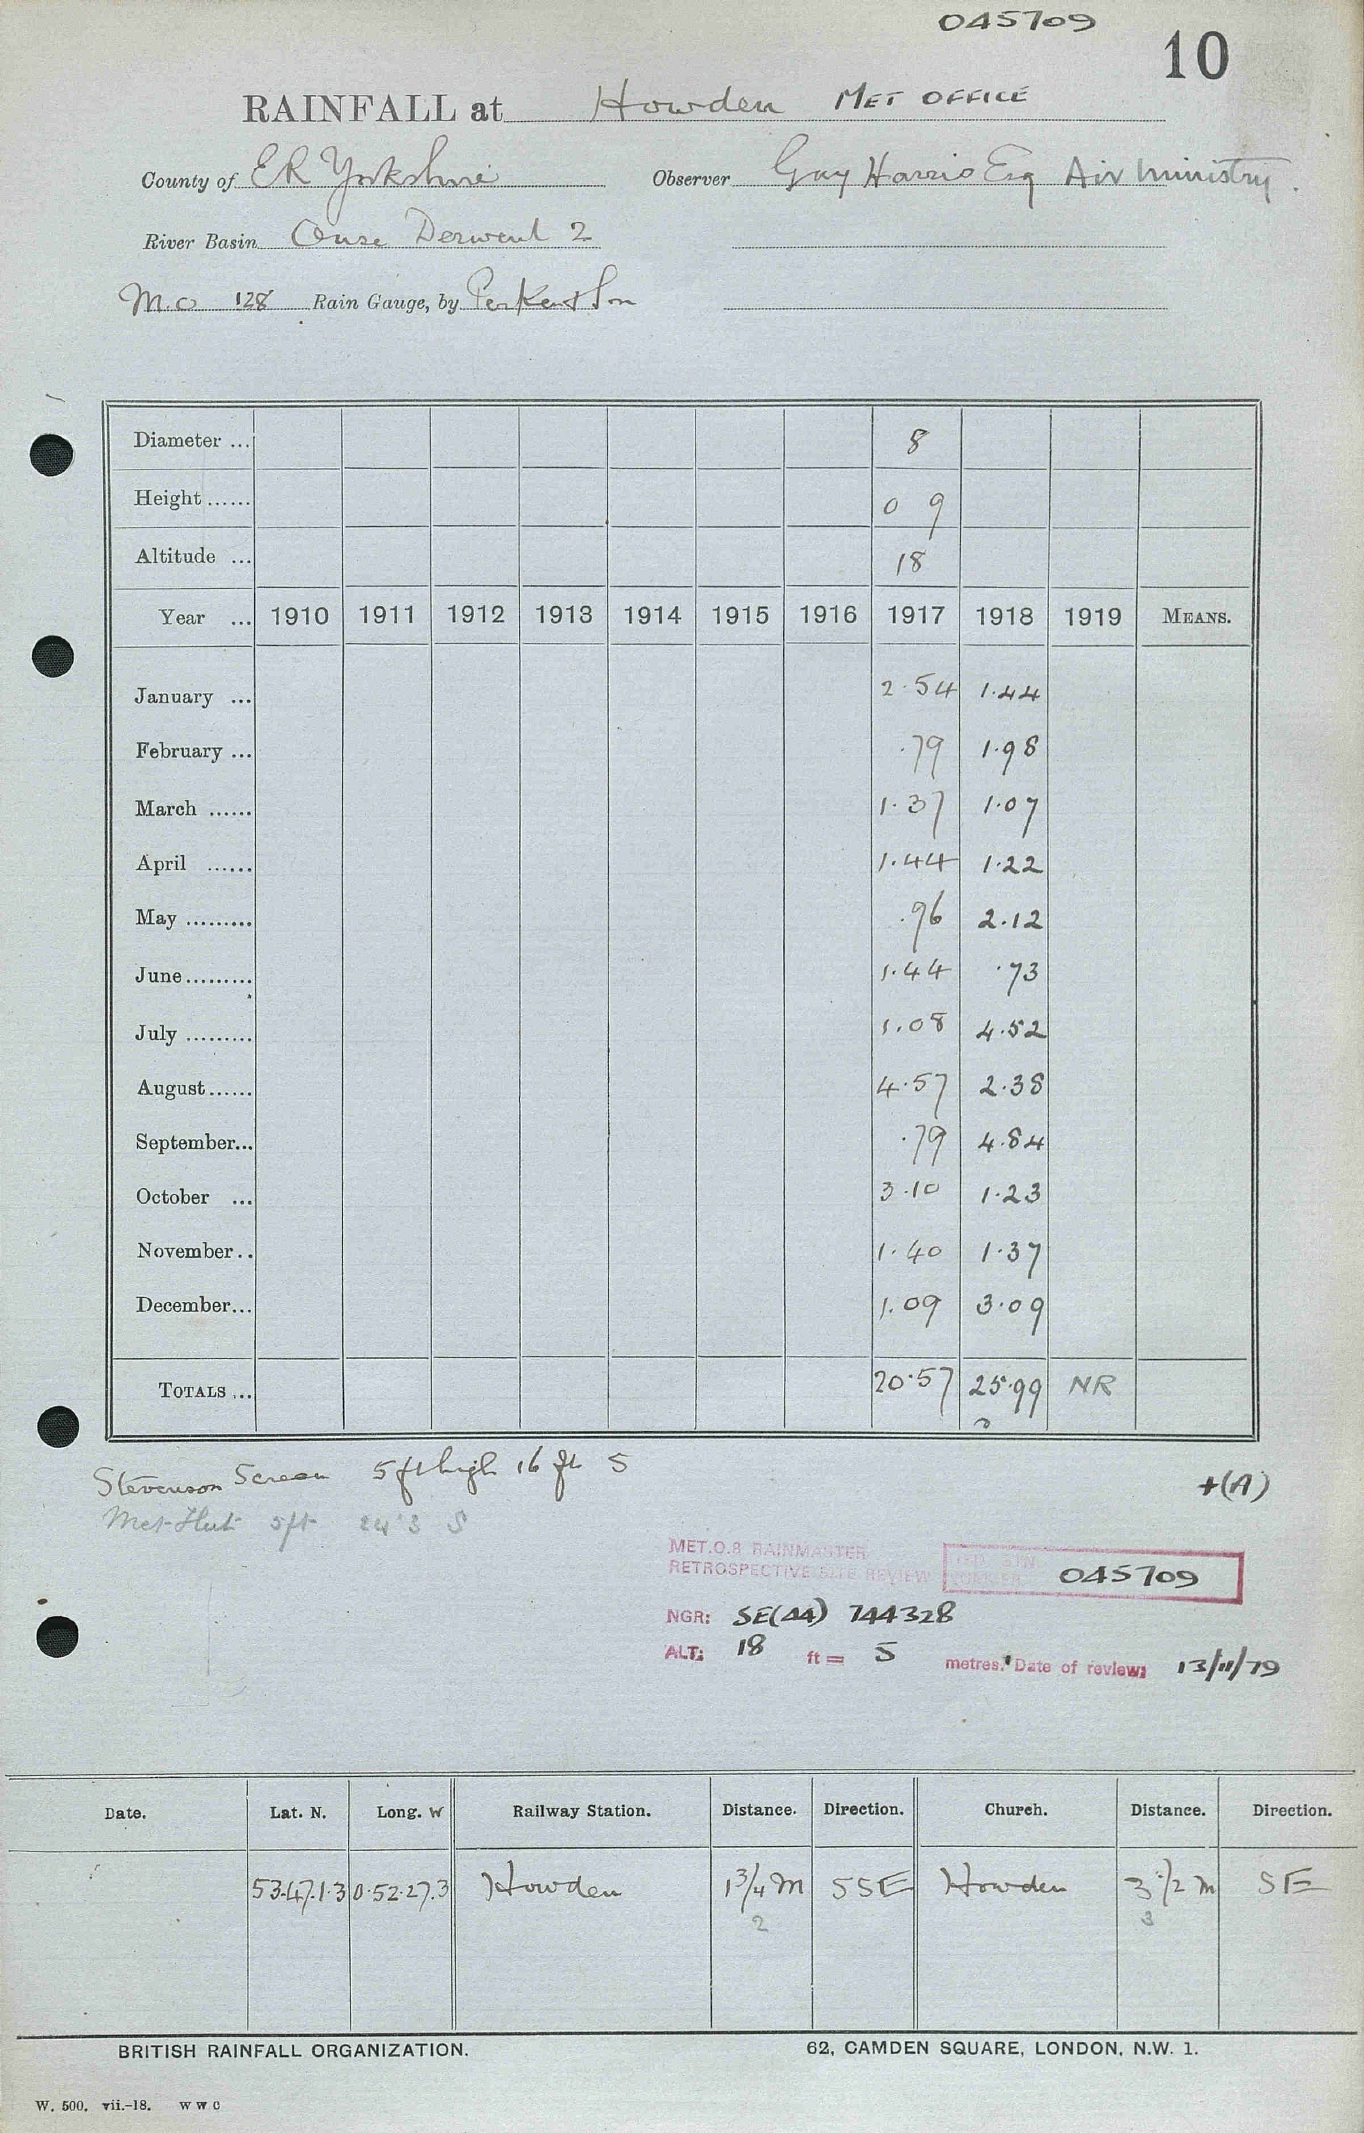 045709
10
RAINFALL at Howden MET OFFICE
County of ER Yorkshire Observer Guy Harris Esq Air Ministry.
River Basin Ouse Derwent 2
M.O 128 Rain Gauge, by Perken & Son
Diameter ... 8
Height ...... 0 9
Altitude ... 18
Year ... 1910 1911 1912 1913 1914 1915 1916 1917 1918 1919 MEANS.
January ... 2.54 1.44
February ... .79 1.98
March ...... 1.37 1.07
April ...... 1.44 1.22
May ......... .96 2.12
June ......... 1.44 .73
July ......... 1.08 4.52
August ...... 4.57 2.38
September... .79 4.84
October ... 3.10 1.23
November .. 1.40 1.37
December... 1.09 3.09
TOTALS ... 20.57 25.99 NR
Stevenson Screen 5 ft high 16 ft S
+(A)
Met Hut 5ft 24'3 S
MET.O.8 RAINMASTER
RETROSPECTIVE SITE REVIEW
STN
NUMBER 045709
NGR: SE(44) 744328
ALT: 18 ft = 5 metres. Date of review: 13/11/79
Date. Lat. N. Long. W Railway Station. Distance. Direction. Church. Distance. Direction.
53.47.1.3 0.52.27.3 Howden 1 3/4 M SSE Howden 3 1/2 M SE
2 3
BRITISH RAINFALL ORGANIZATION. 62, CAMDEN SQUARE, LONDON, N.W. 1.
W. 500. vii.-18. W W C